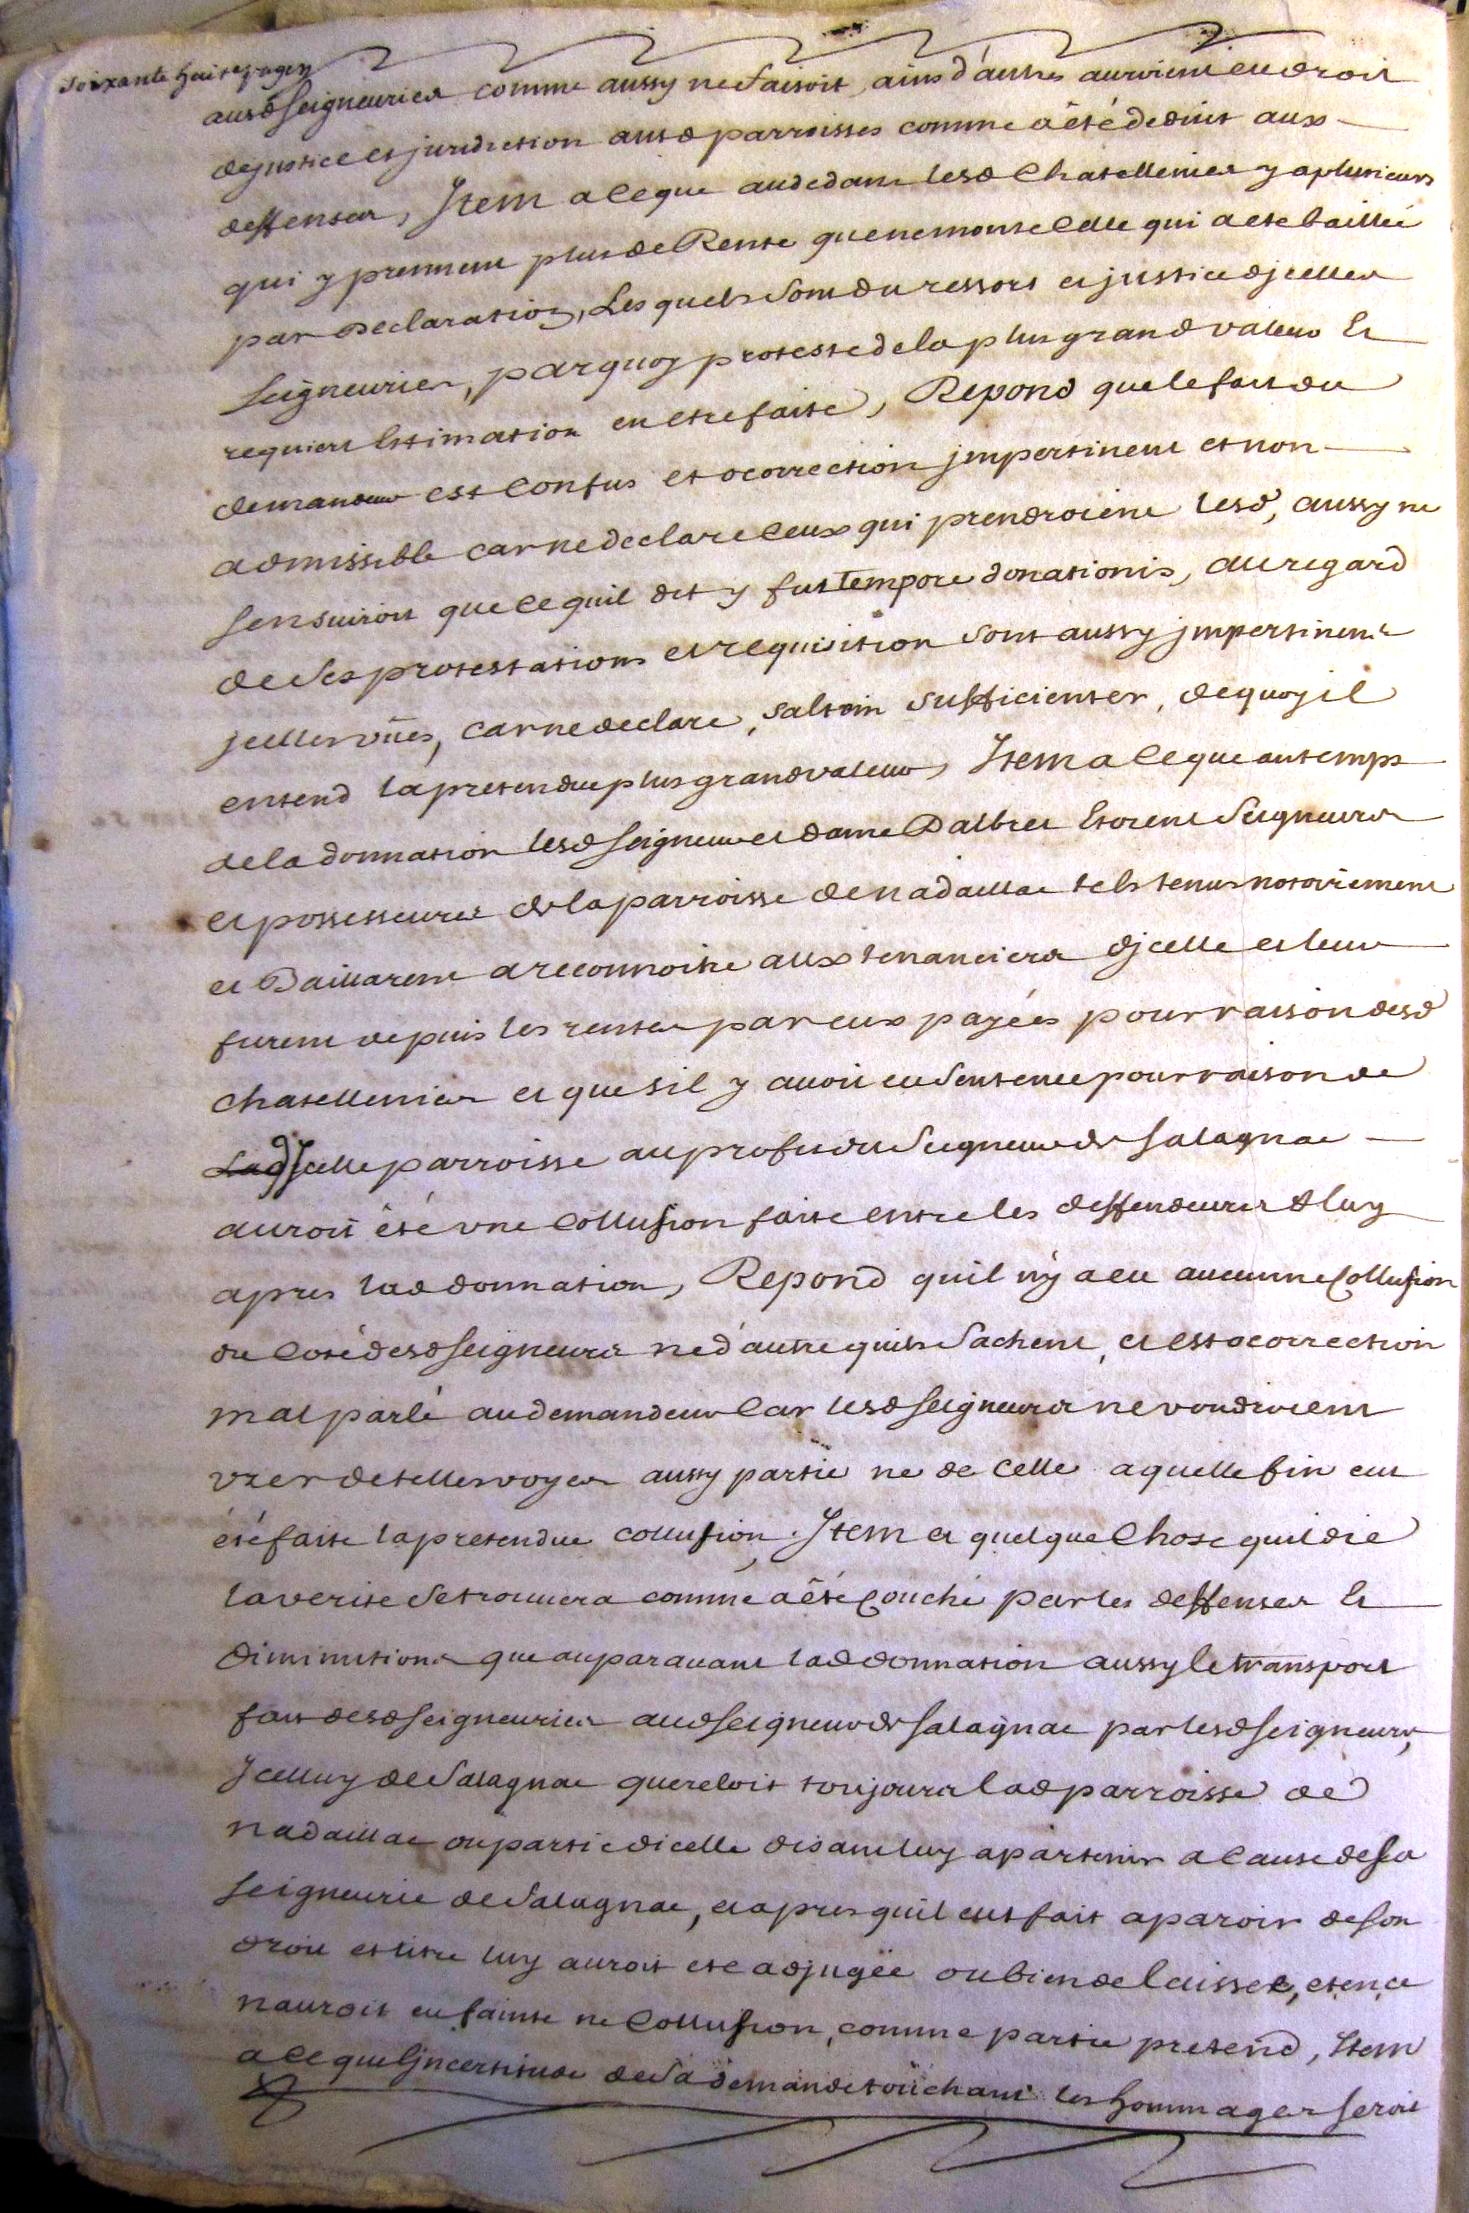 soixante huit pages
ausd seigneuries comme aussy ne faisoit, ains d'autres auroient eu droit
de justice et juridiction ausd parroisses comme a été deduit aux
deffenses, Item a ce que au dedans lesd Chatellenies y a plusieurs
qui y prennent plus de Rente que ne monte celle qui a ete baillée
par declaration, Lesquels sont du ressort et justice djcelles
seigneuries, parquoy proteste de la plus grand valeur Et
requiert Estimation en etre faite, Repond que le fait du
demandeur est Confus et o correction jmpertinent et non
admissible car ne declare Ceux qui prendroient lesd, aussy ne
sensuivroit que ce quil dit y fut tempore donationis, au regard
de ses protestations et requisition sont aussy jmpertinents
jcelles vües, car ne declare, saltem sufficienter, de quoy il
entend la pretendue plus grand valeur, Item a Ce que au temps
de la donnation lesd seigneur et dame Dalbret Etoient seigneurs
et possesseurs de la parroisse de nadaillac tels tenus notoirement
et Baillarent a reconnoitre aux tenanciers djcelle et leur
furent depuis les rentes par eux payées pour raison desd
chatellenies et que sil y avoit eu sentence pour raison de
Lad jcelle parroisse au profit du seigneur de salagnac
auroit été une Collusion faite entre les deffendeurs & luy
apres lad donnation, Repond quil n'y a eu aucunne Collusion
du Coté desd seigneurs ne d'autre quils sachent, et est o correction
mal parlé au demandeur Car lesd seigneurs ne voudroient
vser de telles voyes aussy partie ne de celle a quelle fin eut
été faite la pretendue collusion. Item et quelque Chose quil die
la verite se trouvera comme a été Couché par les deffenses Et
diminutions que auparavant lad donnation aussy le transport
fait desd seigneuries aud seigneur de salagnac par lesd seigneurs,
Jcelluy de salagnac quereloit toujours lad parroisse de
nadaillac ou partie dicelle disant luy apartenir a Cause de sa
seigneurie de salagnac, et apres quil eut fait aparoir de son
droit et titre luy auroit ete adjugée ou bien delaissee, et en ce
nauroit eu fainte ne Collusion, comme partie pretend, Item
a ce que Ljncertitude de sa demande touchant les hommages seroit